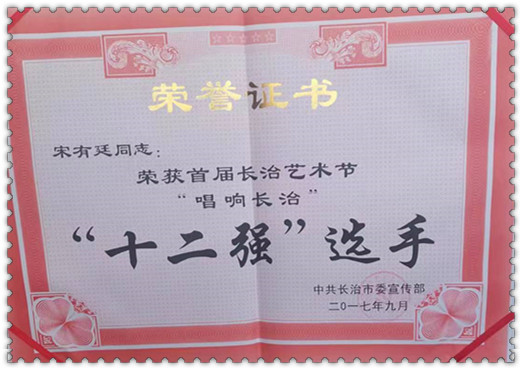 荣誉证书
宋有廷同志：
荣获首届长治艺术节
“唱响长治”
“十二强”选手
中共长治市委宣传部
二〇一七年九月